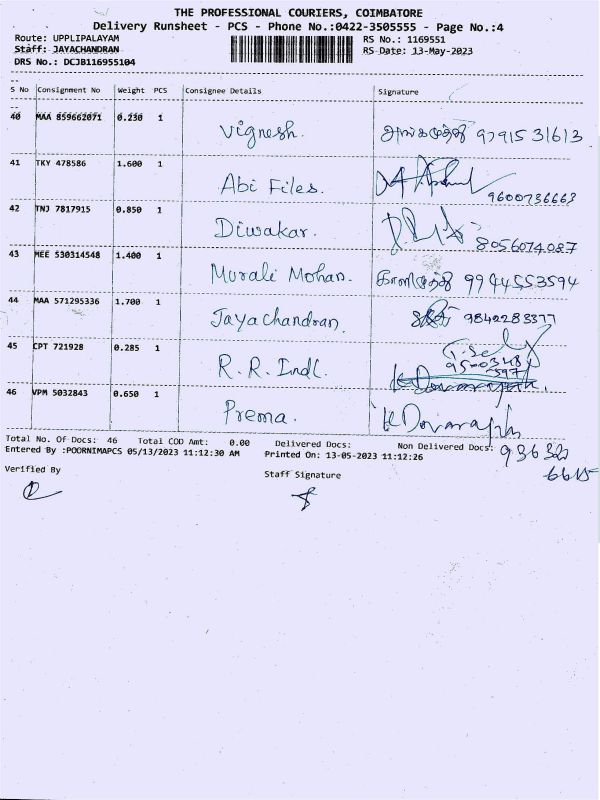 THE PROFESSIONAL COURIERS, COIMBATORE
Delivery Runsheet - PCS - Phone No.:0422-3505555 - Page No.:4
Route: UPPLIPALAYAM
RS No.: 1169551
Staff: JAYACHANDRAN
RS Date: 13-May-2023
DRS No.: DCJB116955104
S No Consignment No Weight PCS Consignee Details Signature
40 MAA 859662071 0.230 1 Vignesh. 9791531613
41 TKY 478586 1.600 1 Abi Files. 9600736663
42 TNJ 7817915 0.850 1 Diwakar. 8056074087
43 MEE 530314548 1.400 1 Murali Mohan. 9944553594
44 MAA 571295336 1.700 1 Jayachandran. 9842283377
45 CPT 721928 0.285 1 R. R. Indl.
46 VPM 5032843 0.650 1 Prema.
Total No. Of Docs: 46 Total COD Amt: 0.00 Delivered Docs: Non Delivered Docs:
Entered By :POORNIMAPCS 05/13/2023 11:12:30 AM Printed On: 13-05-2023 11:12:26
Verified By
Staff Signature